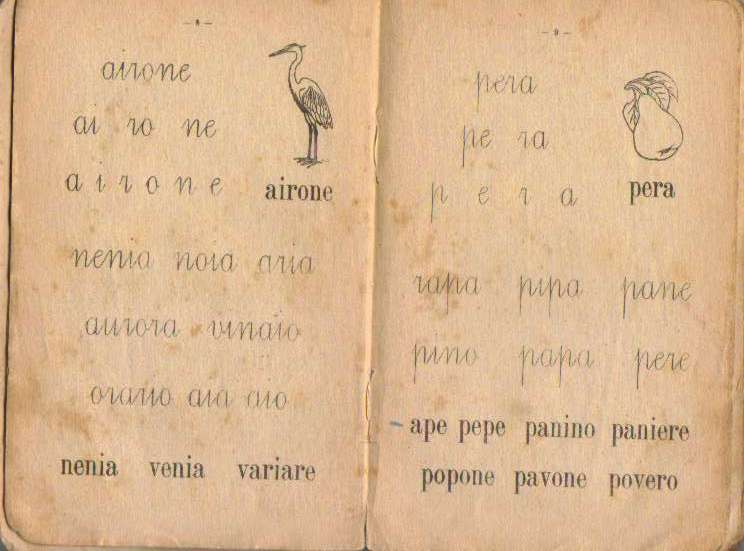 - 8 -
airone
ai ro ne
a i r o n e
airone
nenia noia aria
aurora vinaio
orario aia aio
nenia venia variare
- 9 -
pera
pe ra
p e r a
pera
rapa pipa pane
pino papa pere
ape pepe panino paniere
popone pavone povero